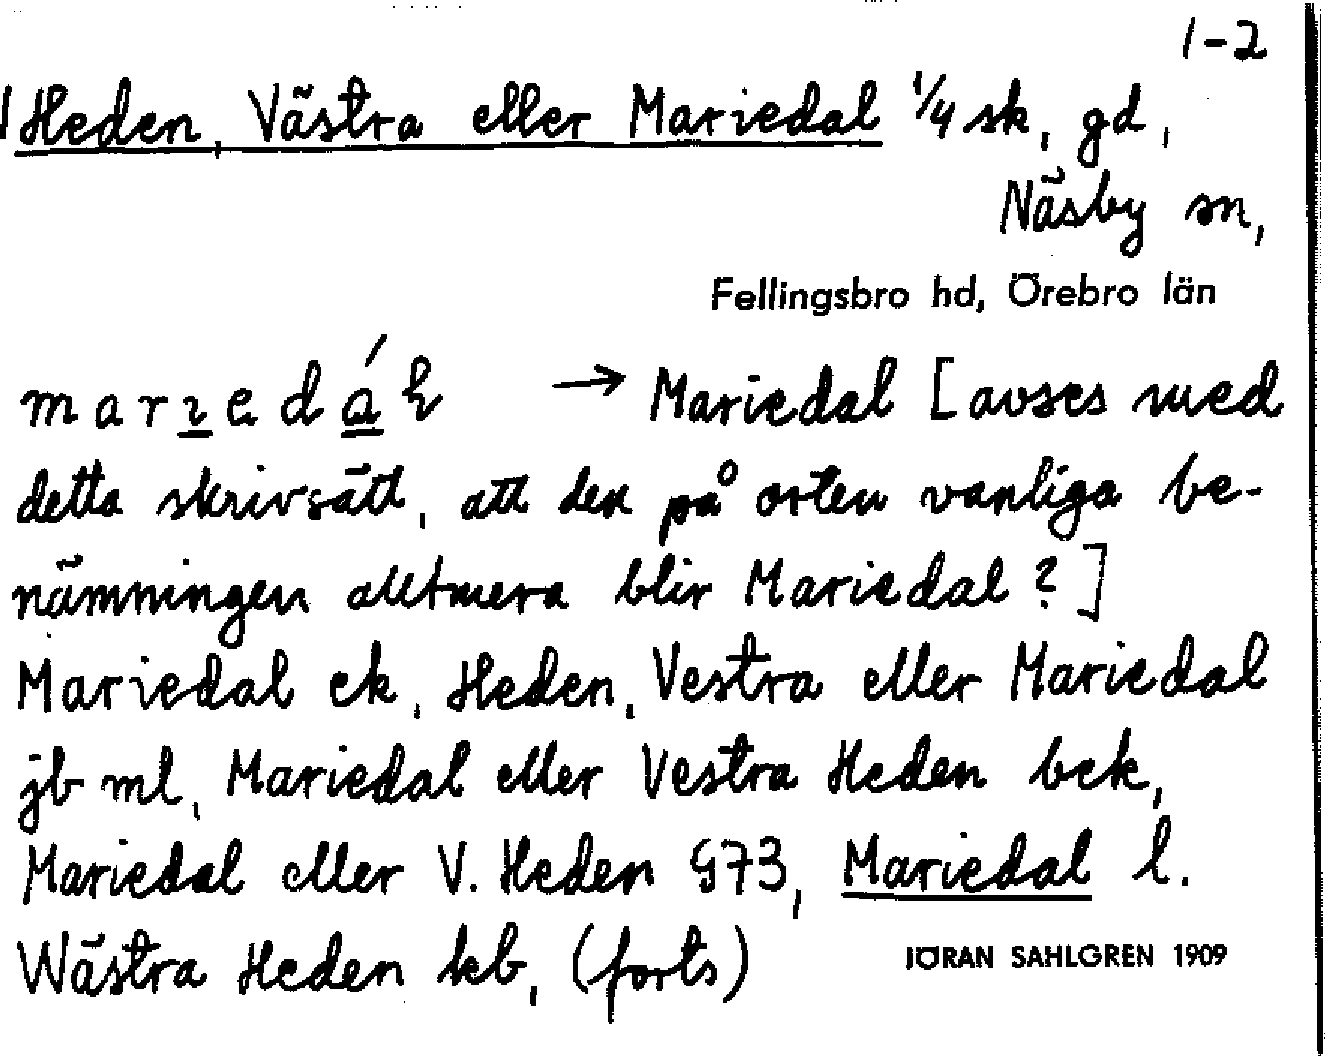 1-2
Heden, Västra eller Mariedal 1/4 sk, gd,
Näsby sn,
Fellingsbro hd, Örebro län
marıedáɫ → Mariedal [avses med
detta skrivsätt, att den på orten vanliga be-
nämningen alltmera blir Mariedal?]
Mariedal ek, Heden, Vestra eller Mariedal
jb ml, Mariedal eller Vestra Heden bek,
Mariedal eller V. Heden G73, Mariedal l.
Wästra Heden kb, (forts)
JÖRAN SAHLGREN 1909